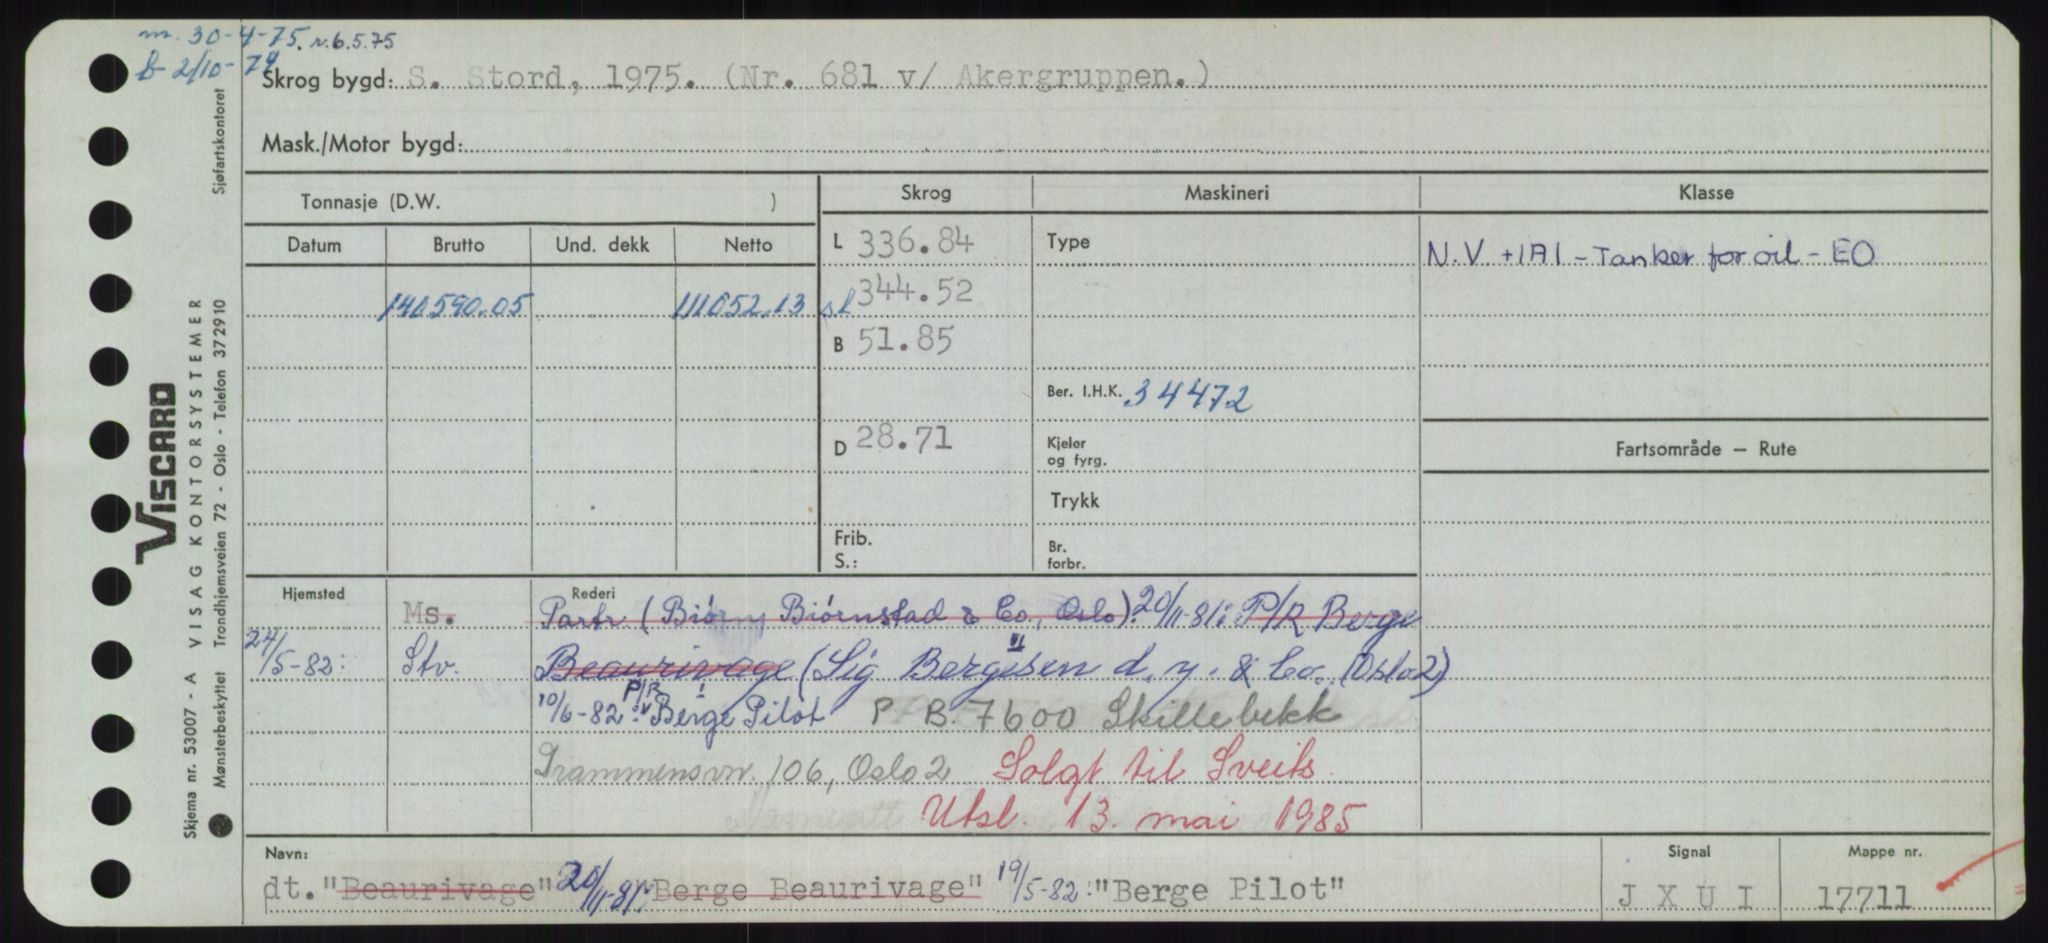 m. 30-4-75. r. 6.5.75
b- 2/10-74
Skrog bygd: S. Stord, 1975. (Nr. 681 v/ Akergruppen.)
Mask./Motor bygd:
Tonnasje (D.W. )
Skrog
Maskineri
Klasse
Datum Brutto Und. dekk Netto
L 336.84
Type
N.V +1A1 - Tanker for oil - EO
140590.05 111052.13
sl 344.52
B 51.85
Ber. I.H.K. 34472
D 28.71
Kjeler
og fyrg.
Fartsområde — Rute
Trykk
Frib.
S.:
Br.
forbr.
Hjemsted
Rederi
Ms. Partr (Biørn Biørnstad & Co., Oslo). 20/11-81: P/R Berge
24/5-82: Stv. Beaurivage (Sig Bergesen d.y. & Co. (Oslo 2)
10/6-82: P/R Berge Pilot P B. 7600 Skillebekk
Drammensvn. 106, Oslo 2 Solgt til Sveits.
Utsl. 13. mai 1985
Navn:
dt. "Beaurivage" 20/11-81: "Berge Beaurivage" 19/5-82: "Berge Pilot"
Signal
J X U I
Mappe nr.
17711
VISCARD
Skjema nr. 53007 - A VISAG KONTORSYSTEMER
Mønsterbeskyttet Trondhjemsveien 72 - Oslo - Telefon 372910 Sjøfartskontoret